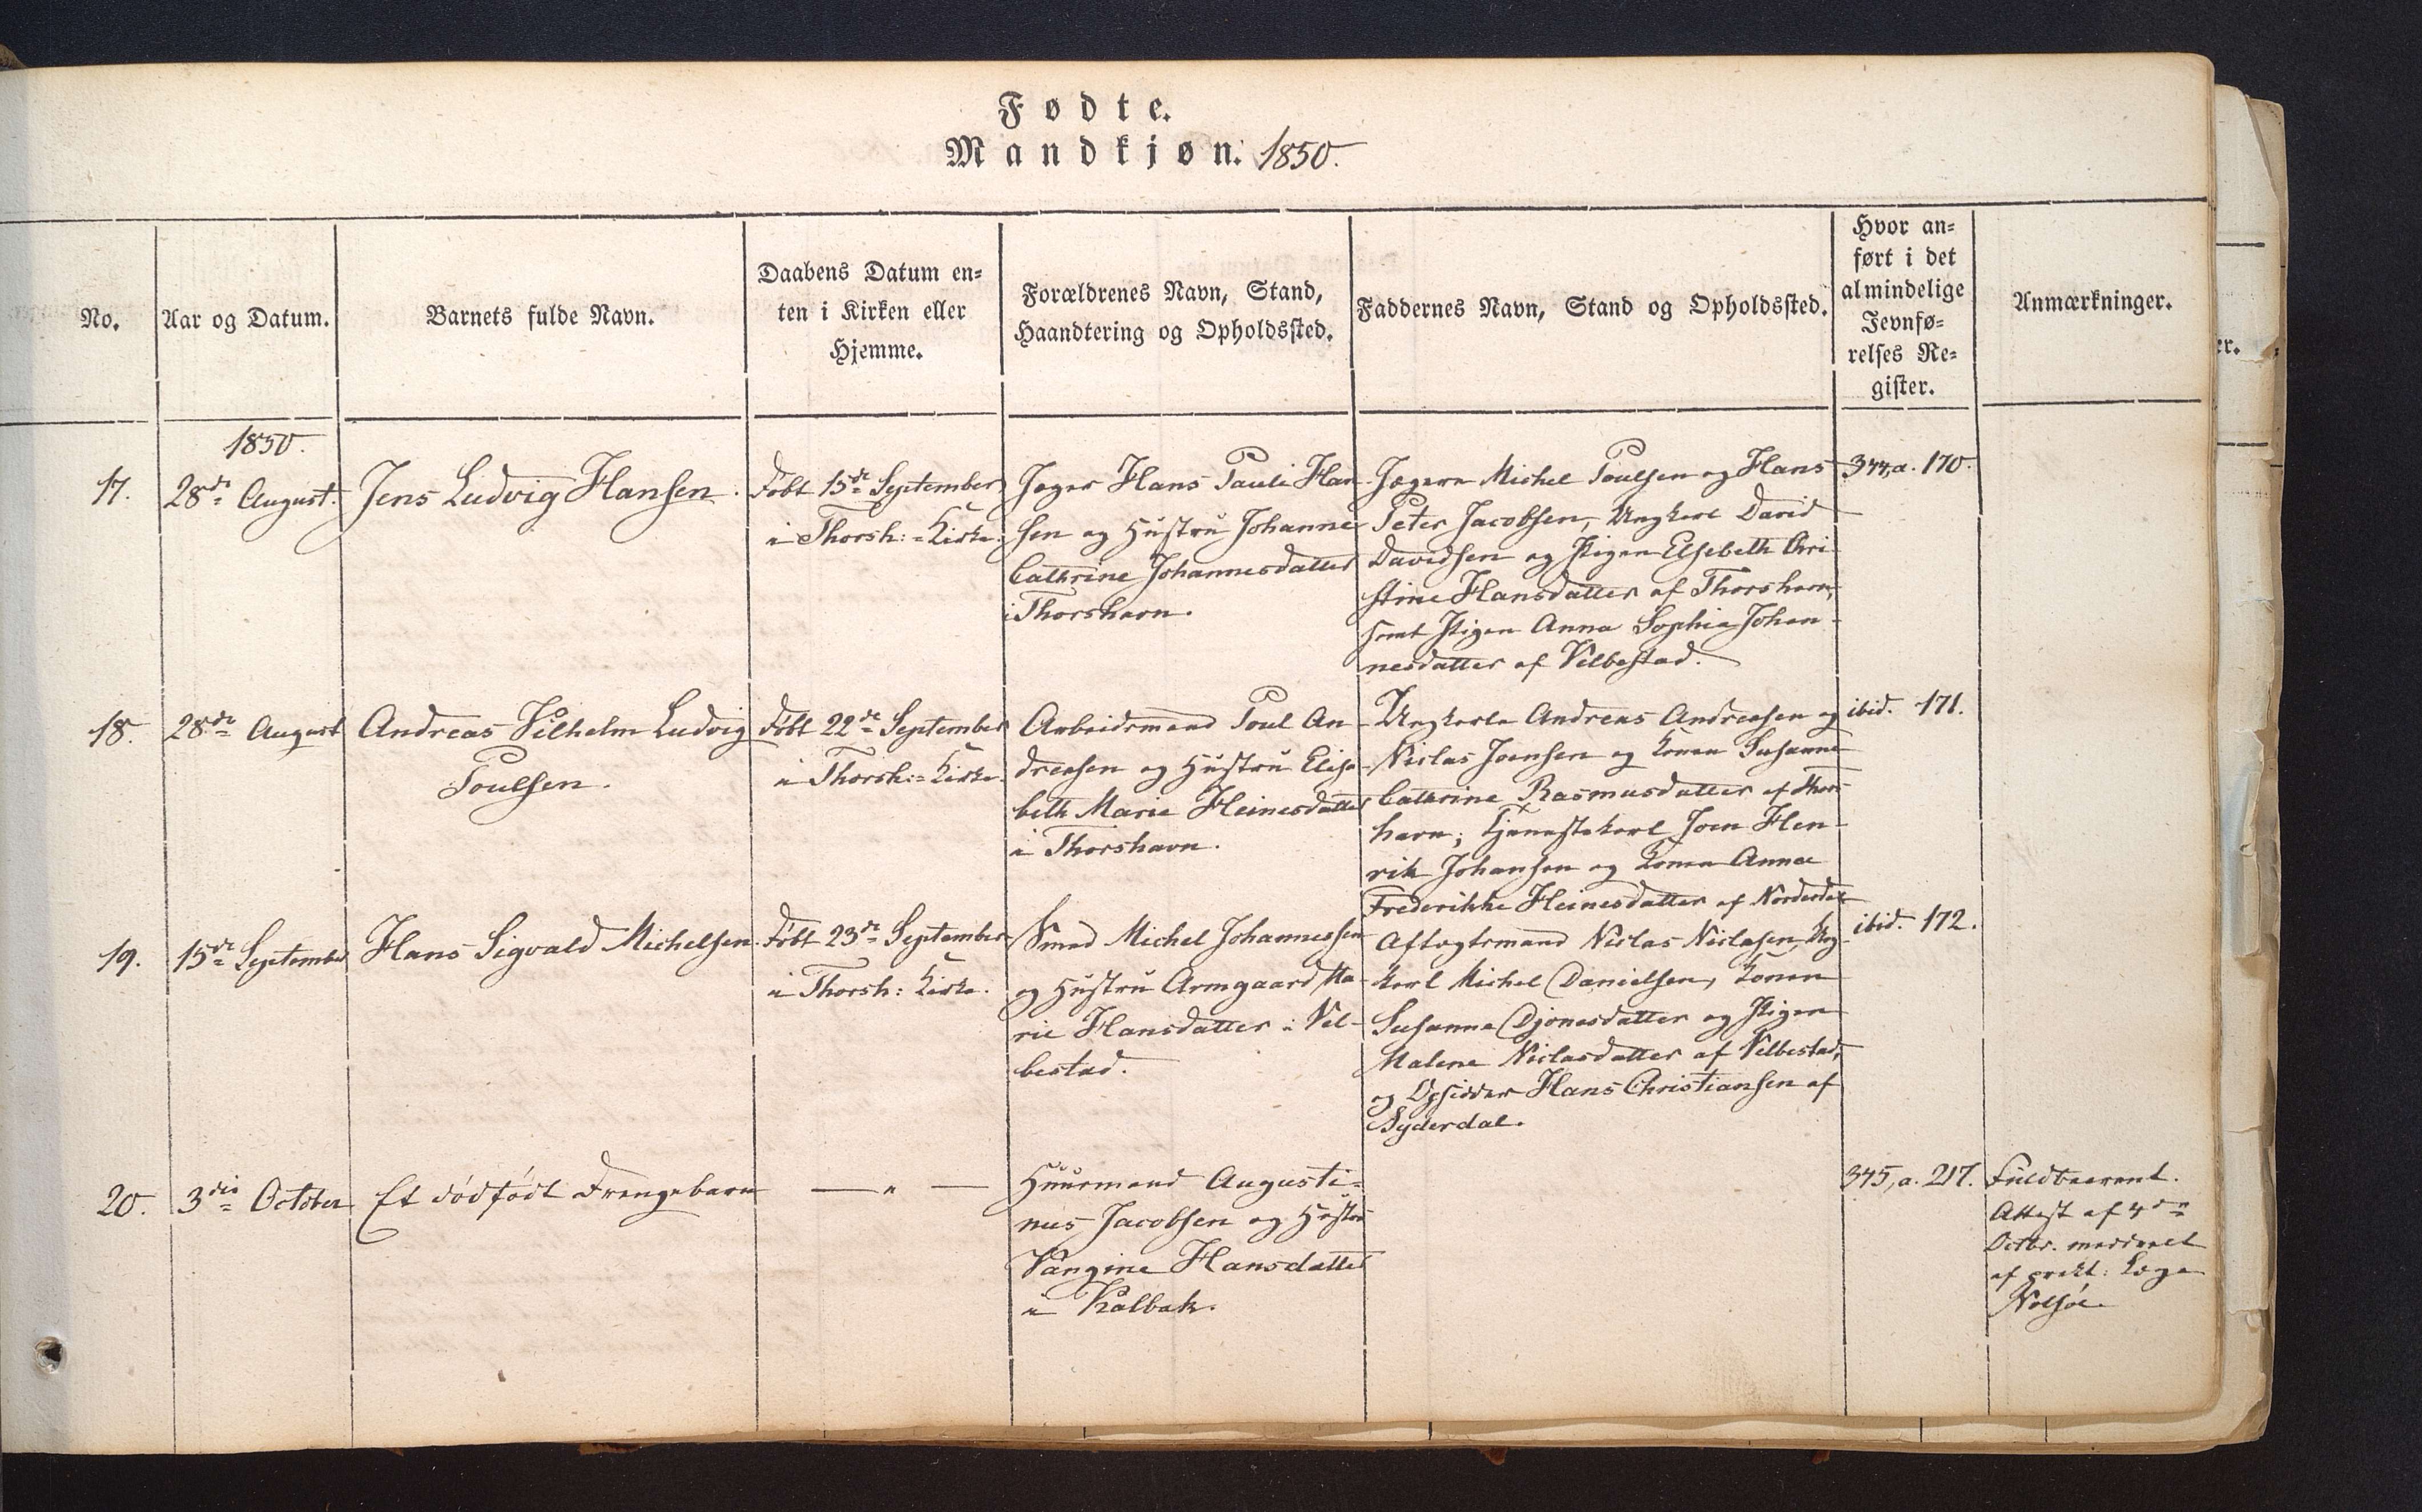 Fødte.
Mandkjøn. 1850.
No.
Aar og Datum.
Barnets fulde Navn.
Daabens Datum en=
ten i Kirken eller
Hjemme.
Forældrenes Navn, Stand,
Haandtering og Opholdssted.
Faddernes Navn, Stand og Opholdssted.
Hvor an=
ført i det
almindelige
Jevnfø=
relses Re=
gister.
Anmærkninger.
1850.
17.
28de August.
Jens Ludvig Hansen.
Døbt 15de September
i Thorsh:=Kirke.
Jæger Hans Pauli Han
sen og Hustru Johanne
Cathrine Johannesdatter
i Thorshavn.
Jægere Michel Poulsen og Hans
Peter Jacobsen, Ungkarl David
Davidsen og Pigen Elsebeth Chri
stine Hansdatter af Thorshavn,
samt Pigen Anna Sophia Johan-
nesdatter af Velbestad.
344, a. 170.
18.
28de August
Andreas Vilhelm Ludvig
Poulsen.
Døbt 22de September
i Thorsh:=Kirke.
Arbeidsmand Poul An-
dreasen og Hustru Elisa
beth Marie Heinesdatter
i Thorshavn.
Ungkarle Andreas Andreasen og
Niclas Joensen og Konen Susanne
Cathrine Rasmusdatter af Thors
havn; Tjenestekarl Joen Hen-
rik Johansen og Konen Anna
Frederikke Heinesdatter af Norderdal
ibid. 171.
19.
15de September
Hans Sigvald Michelsen.
Døbt 23de September
i Thorsh: Kirke.
Smed Michel Johannessen
og Hustru Armgaard Ma-
rie Hansdatter i Vel-
bestad.
Aftægtsmand Niclas Niclasen, Ung-
karl Michel Danielsen, Konen
Susanne Djonesdatter og Pigen
Malene Niclasdatter af Velbestad,
og Opsidder Hans Christiansen af
Syderdal.
ibid. 172.
20.
3die October
Et dødfødt Drengebarn
— " —
Huusmand Augusti=
nus Jacobsen og Hustru
Vangine Hansdatter
i Kalbak.
345, a. 217.
Fuldbaarent.
Attest af 4de
Octbr. meddeelt
af prakt: Læge
Nolsøe.